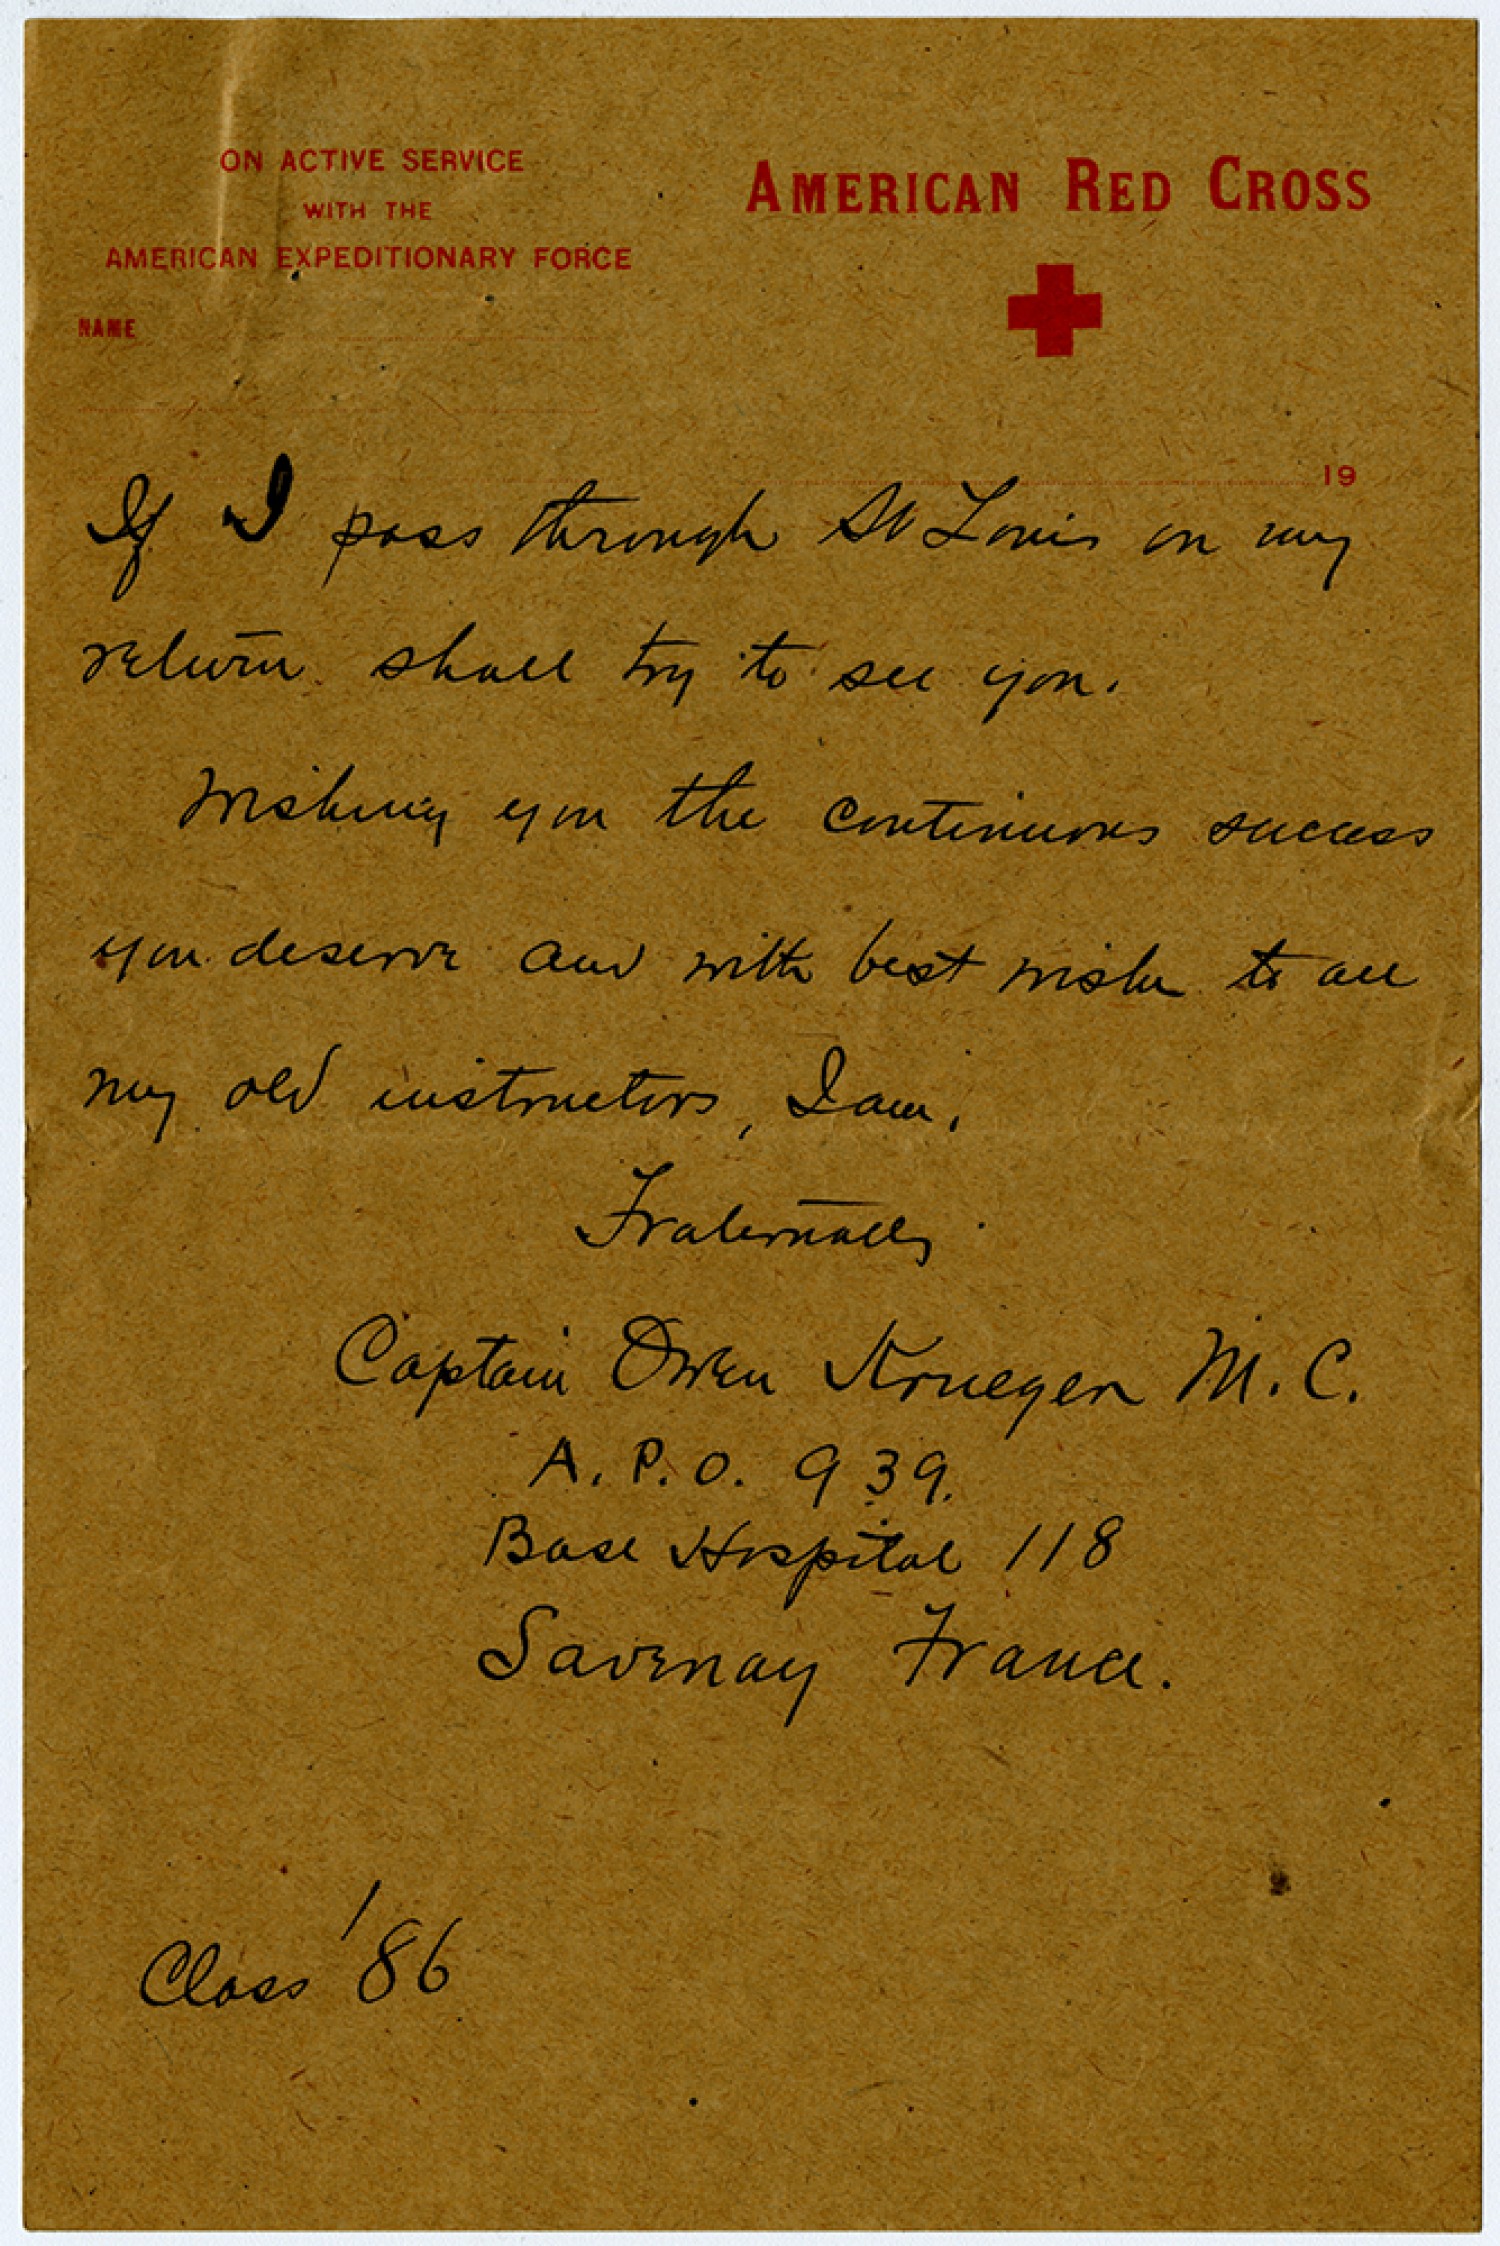 ON ACTIVE SERVICE
WITH THE
AMERICAN EXPEDITIONARY FORCE
NAME
AMERICAN RED CROSS
19
If I pass through St Louis on my
return shall try to see you.
Wishing you the continuous success
you deserve and with best wishes to all
my old instructors, I am,
Fraternally
Captain Owen Krueger M.C.
A.P.O. 939.
Base Hospital 118
Savenay France.
Class '86